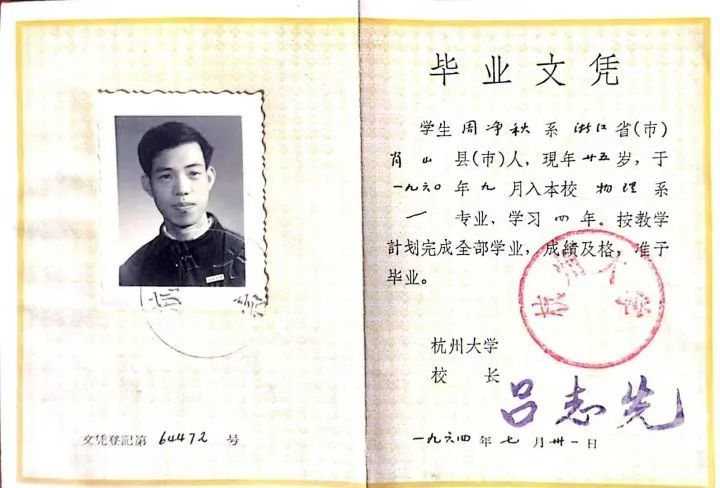 毕业文凭
学生周净秋系浙江省(市)
肖山县(市)人，現年廿五岁，于
一九六〇年九月入本校物理系
一专业，学习四年。按教学
計划完成全部学业，成績及格，准予
毕业。
杭州大学
杭州大学
校长 吕志先
文凭登記第 64472 号
一九六四年七月卅一日